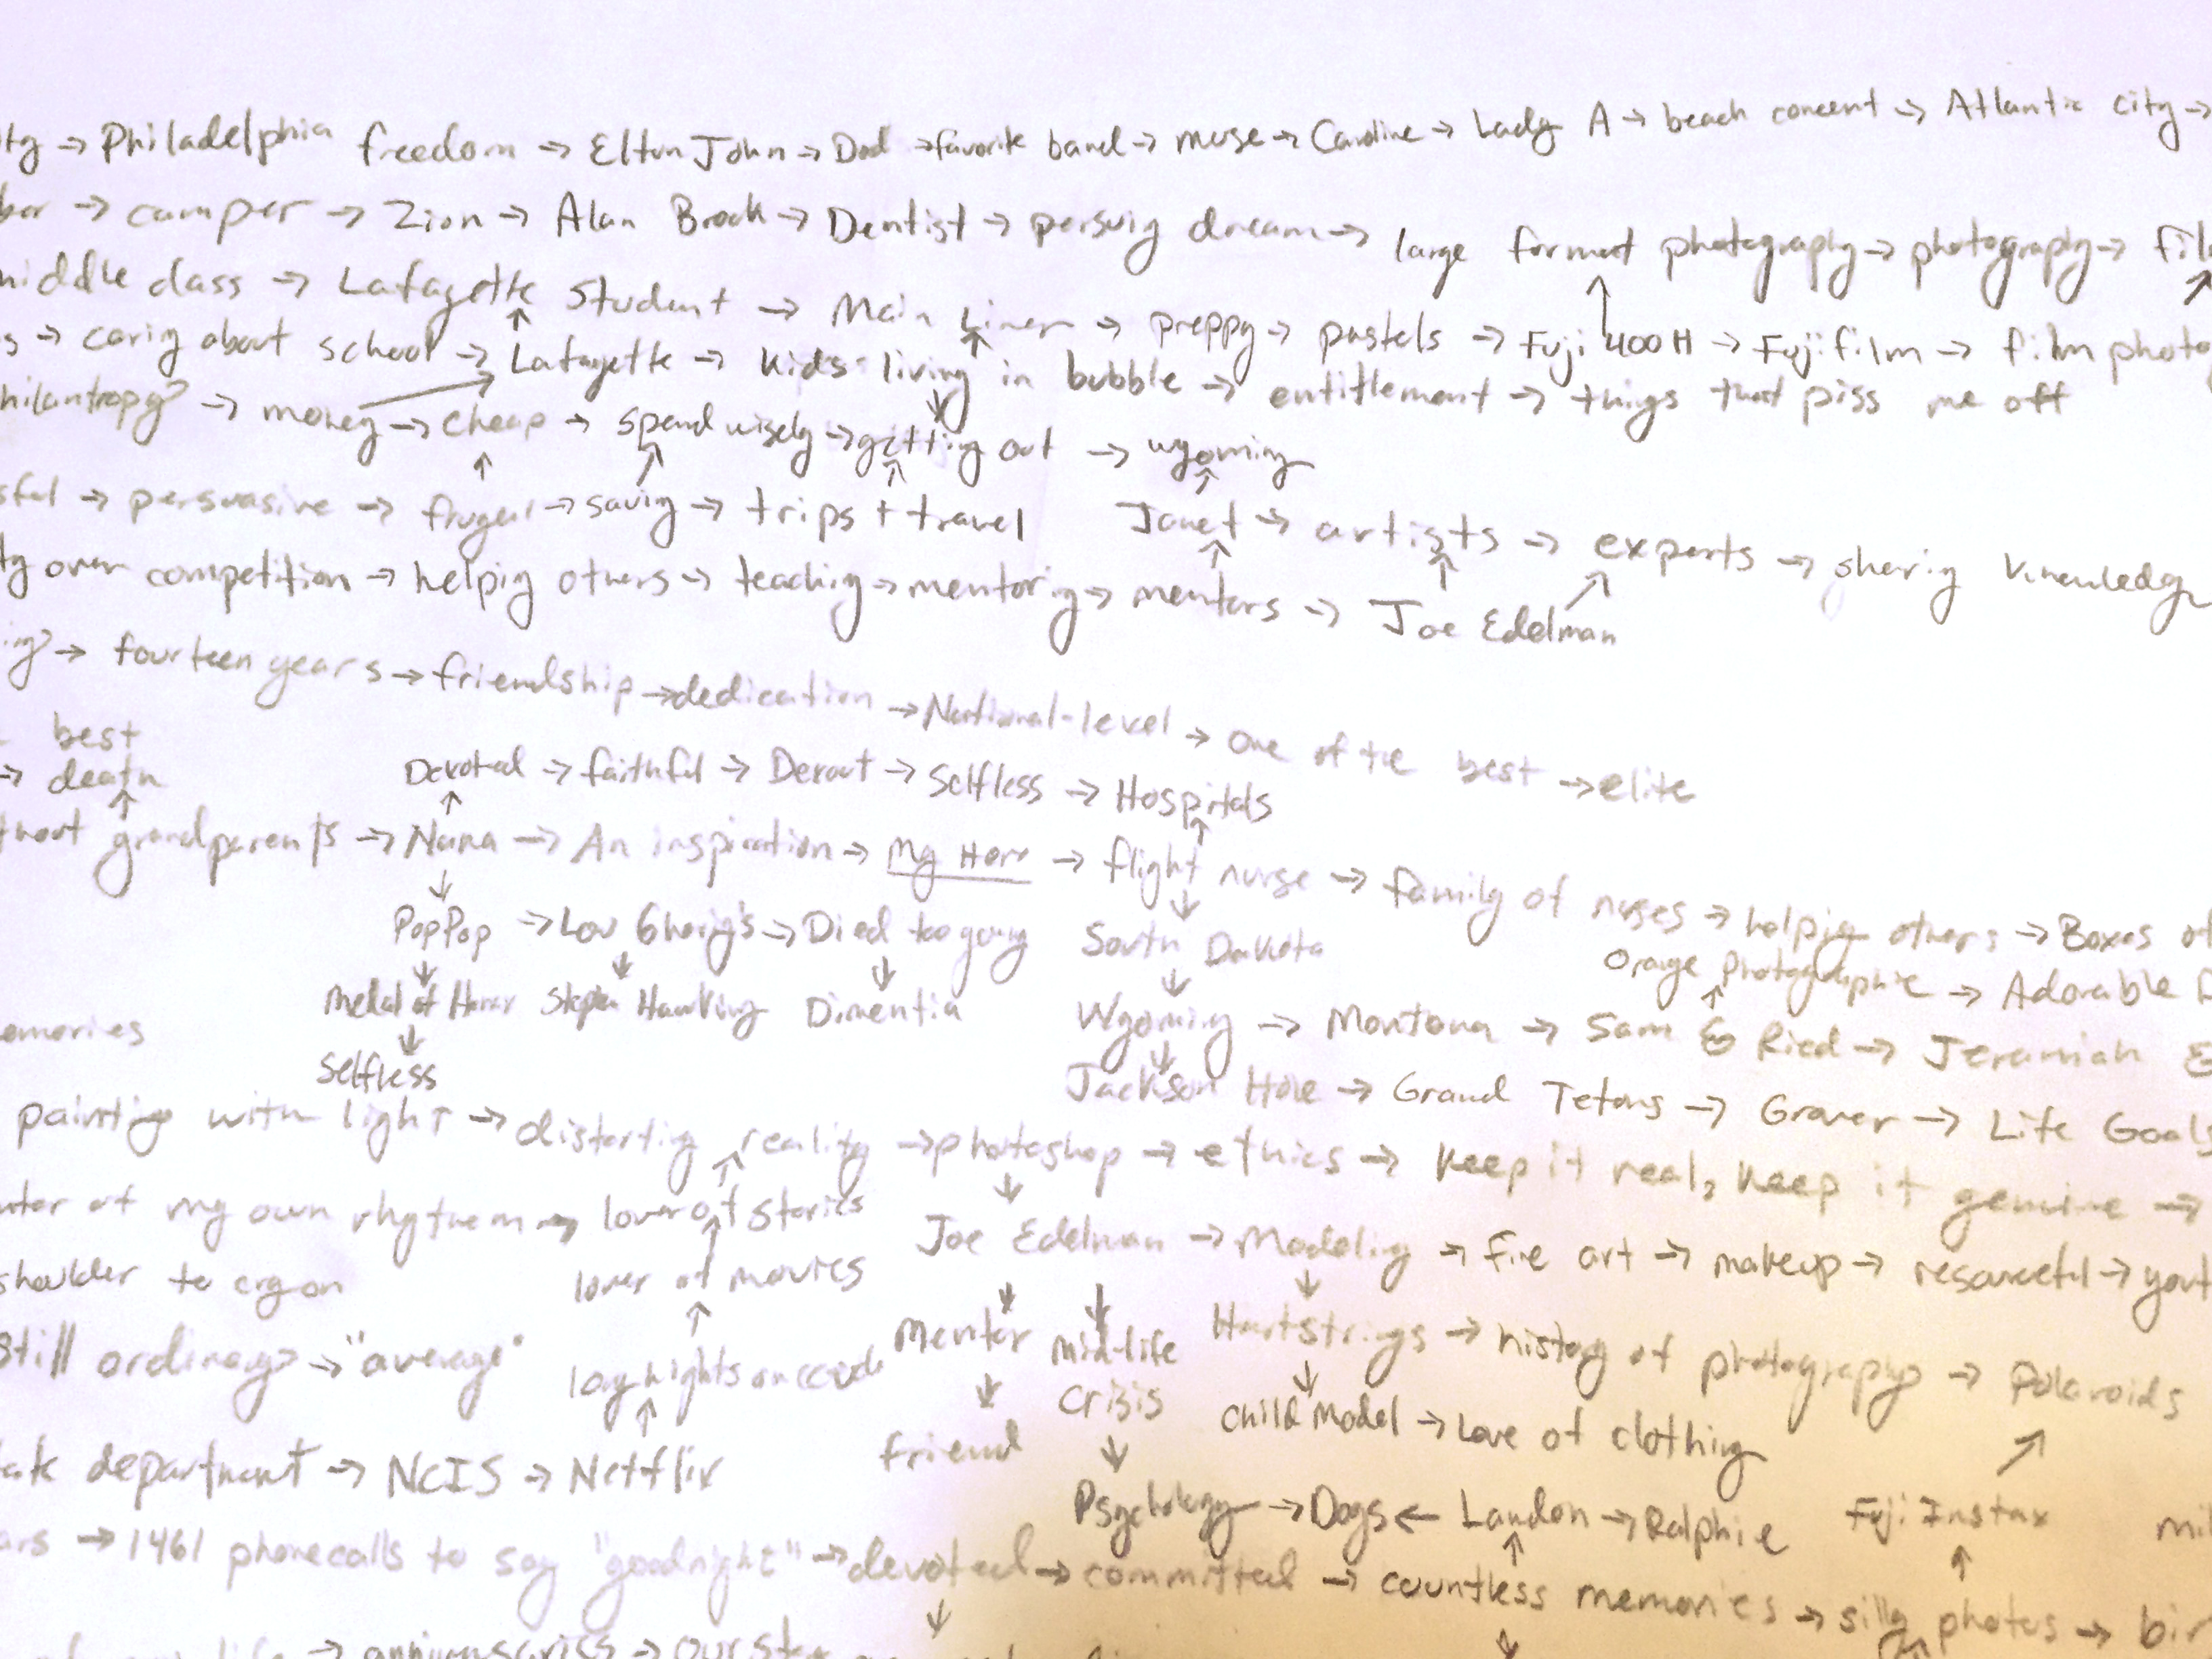 → Philadelphia freedom → Elton John → Dad → favorite band → muse → Caroline → Lady A → beach concert → Atlantic city →
→ camper → Zion → Alan Brock → Dentist → persuig dream → large format photography → photography →
middle class → Lafayette Student → Main Liner → preppy → pastels → Fuji 400H → Fujifilm → film photo
→ carig about school → Lafayette → kids living in bubble → entitlement → things that piss me off
→ money → cheap → spend wisely → getting out → wyoming
→ persuasive → frugal → savig → trips + travel Janet → artists → experts → sharig knowledge
over competition → helpig others → teachig → mentorig → mentors → Joe Edelman
→ fourteen years → friendship → dedication → National-level → one of the best → elite
best
→ death Devoted → faithful → Devout → Selfless → Hospitals
grandparents → Nana → An inspiration → My Hero → flight nurse → family of nurses → helpig others → Boxes of
PopPop → Lou Gherig's → Died too young South Dakota Orange Photographie → Adorable
Medal of Honor Stephen Hawking Dimentia Wyoming → Montana → Sam & Ried → Jeramiah &
Selfless Jackson Hole → Grand Tetons → Grover → Life Goals
paintig with light → distortig reality → photoshop → ethics → keep it real, keep it genuine →
of my own rhythem → lover of stories Joe Edelman → Modelig → fine art → makeup → resourceful →
shoulder to cry on lover of movies Mentor Mid-life Crisis Hartstrings → history of photography → Polaroids
Still ordinary → "average" long nights on couch friend Child Model → Love of clothing
department → NCIS → Netflix Psychology → Dogs ← Landon → Ralphie Fuji Instax
→ 1461 phonecalls to say "goodnight" → devoted → committed → countless memories → silly photos →
life → anniversaries →